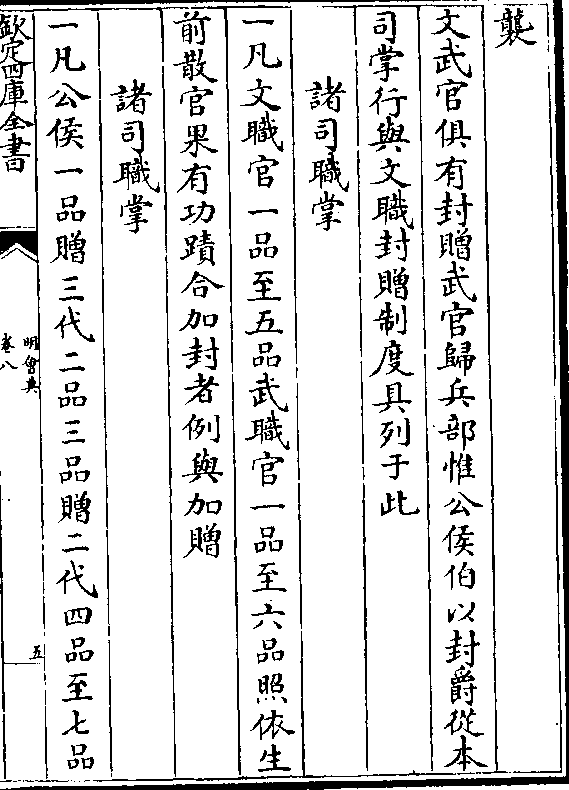 襲
文武官俱有封贈武官歸兵部惟公侯伯以封爵從本
司掌行與文職封贈制度具列于此
諸司職掌
一凡文職官一品至五品武職官一品至六品照依生
前散官果有功蹟合加封者例與加贈
諸司職掌
一凡公侯一品贈三代二品三品贈二代四品至七品
欽定四庫全書
明會典
卷八
五